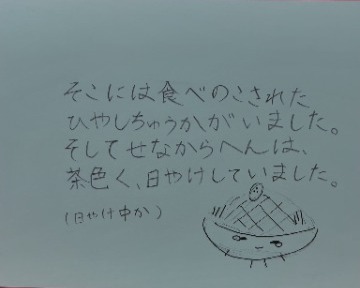 そこには食べのこされた
ひやしちゅうかがいました。
そしてせなからへんは、
茶色く、日やけしていました。
(日やけ中か)